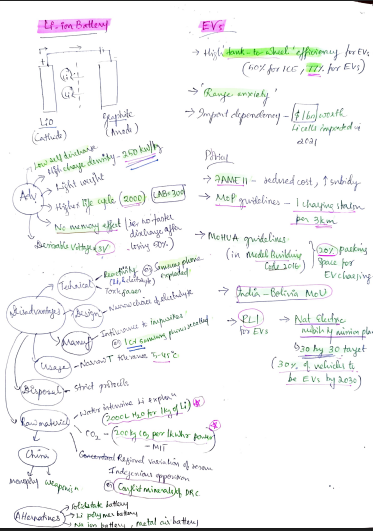 Li-ion Battery
Li
Li
LiO
(Cathode)
Graphite
(Anode)
Adv
Low self discharge
High charge density - 250 kWh/kg
Light weight
Higher life cycle (2000) (LAB=300)
No memory effect
Desirable Voltage 3V
Disadvantages
Technical
Reactivity
Samsung phone exploded
Toxic gases
Design
Narrow choice of electrolyte
Manuf
Intolerance to impurities
Usage
Narrow T tolerance 5-45°C
Disposal
Strict protocols
Raw material
Water intensive Li exploration
(2000L H2O for 1kg of Li)
CO2
- MIT
Regional variation of
Indigenous opposition
Conflict minerals of DRC
China
monopoly weaponisn
Alternatives
Solid state battery
Li polymer battery
Na ion battery, metal air battery
EVs
→ High 'tank-to wheel' efficiency for EVs
(60% for ICE, 77% for EVs)
→ 'Range anxiety'
→ Import dependency - ↑ 1bn worth
Li cells imported in
2021
→ FAME II - reduced cost, ↑ subsidy
→ MoP guidelines - 1 charging station
per 3km
→ MoHUA guidelines
(in Model Building
Code 2016)
20% parking
space for
EV charging
→ India - Bolivia MoU
→ PLI
for EVs
→ Nat Electric
mobility mission plan
→ 30 by 30 target
(30% of vehicles to
be EVs by 2030)